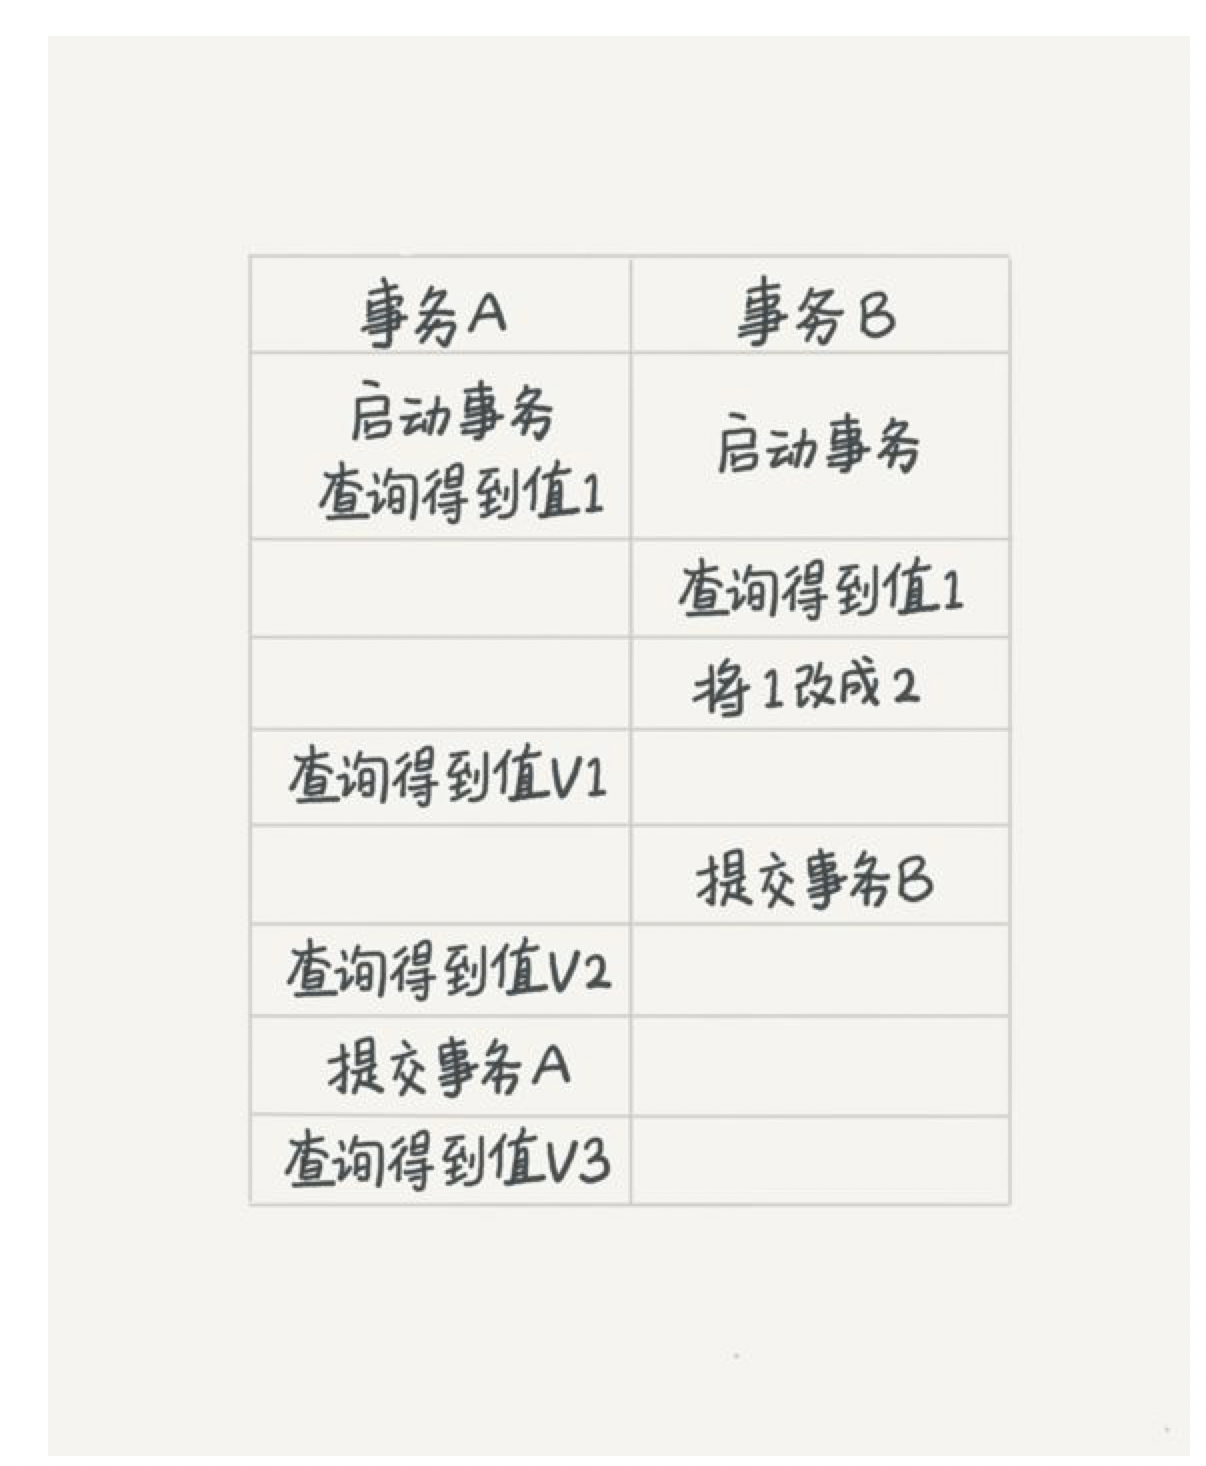 事务A
事务B
启动事务
查询得到值1
启动事务
查询得到值1
将1改成2
查询得到值V1
提交事务B
查询得到值V2
提交事务A
查询得到值V3